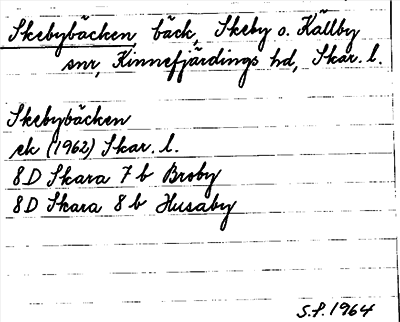 Skebybäcken, bäck, Skeby o. Källby
snr, Kinnefjärdings hd, Skar. l.
Skebybäcken
ek (1962) Skar. l.
8D Skara 7 b Broby
8D Skara 8 b Husaby
S.F. 1964